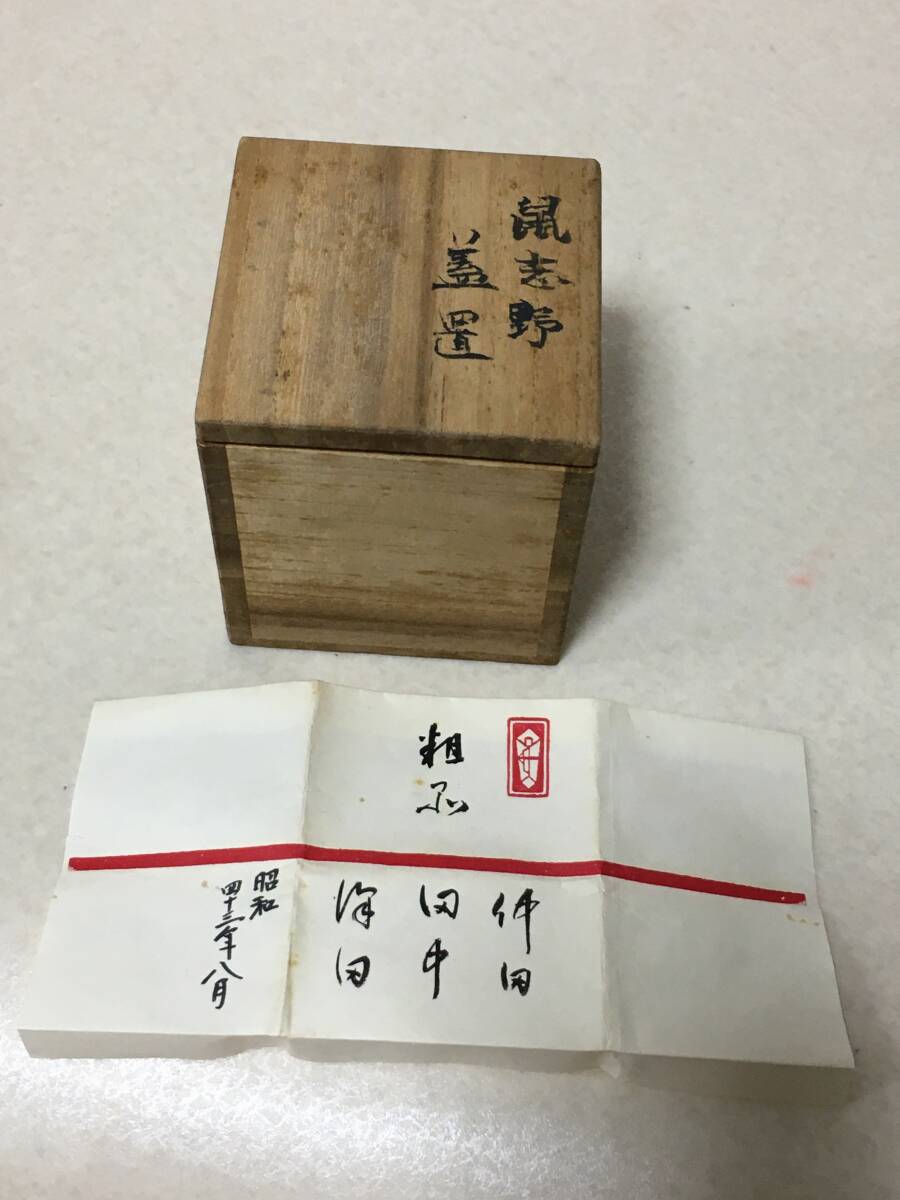 鼠志野
蓋置
粗品
仲田
田中
澤田
昭和
四十三年八月